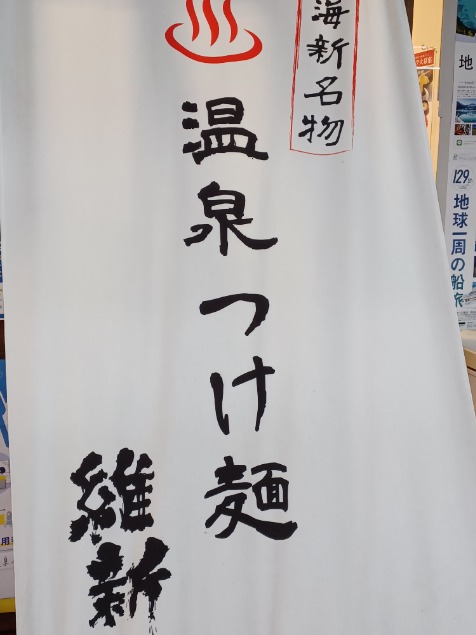 海新名物
温泉つけ麺
維新
地
129
地球一周の船旅